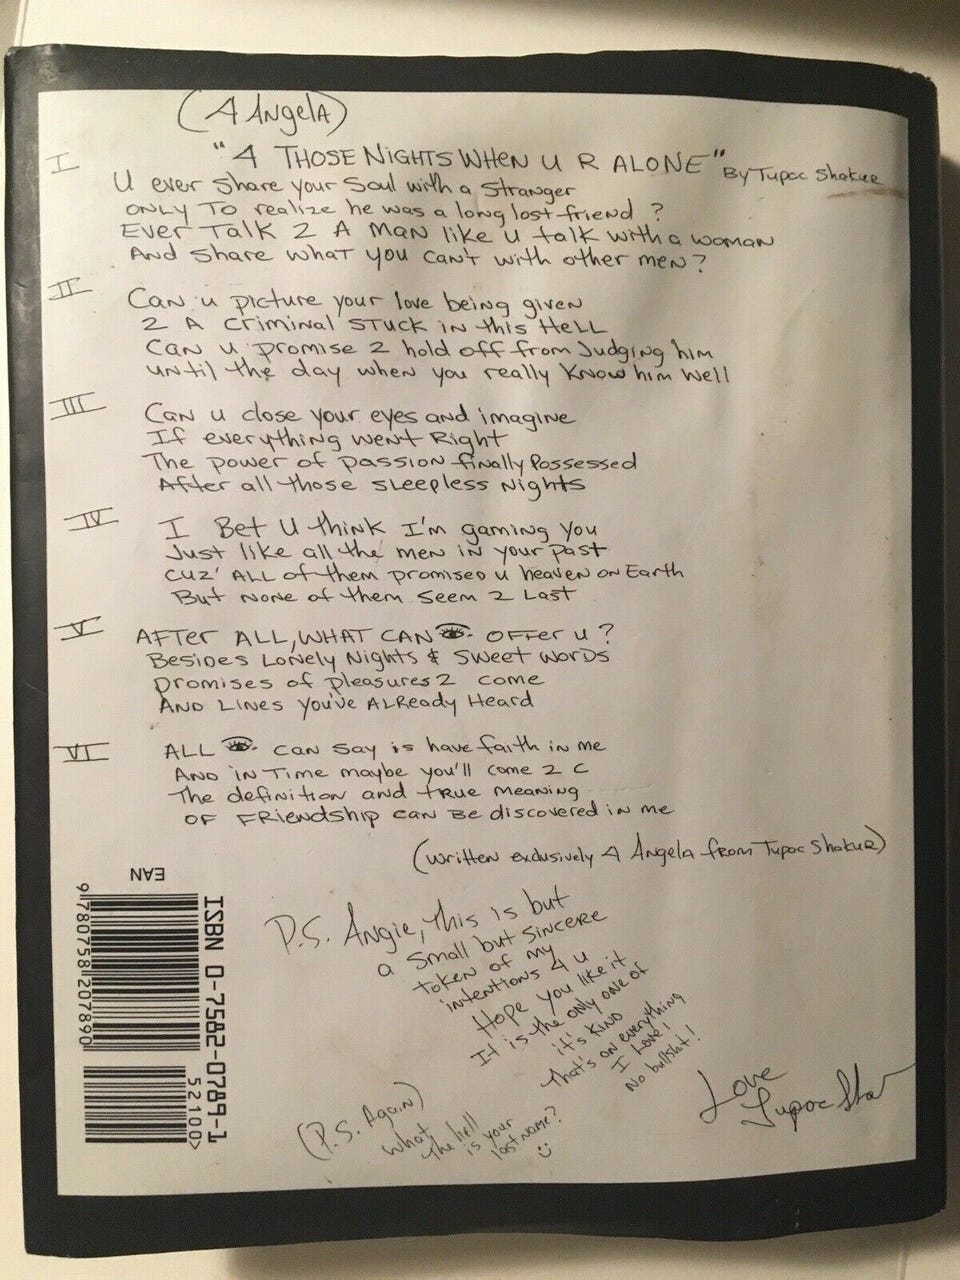 (4 Angela)
"4 THOSE NIGHTS WHEN U R ALONE" By Tupac Shakur
I
U ever share your soul with a stranger
ONLY TO realize he was a long lost friend ?
Ever Talk 2 A Man like u talk with a woman
And share what you can't with other men ?
II
Can u picture your love being given
2 A criminal stuck in this Hell
Can u promise 2 hold off from Judging him
until the day when you really know him well
III
Can u close your eyes and imagine
If everything went Right
The power of passion finally Possessed
After all those sleepless Nights
IV
I Bet U think I'm gaming you
Just like all the men in your past
cuz' ALL of them promised u heaven on Earth
But none of them seem 2 Last
V
AFTER ALL, WHAT CAN 👁 OFFer u ?
Besides Lonely Nights & sweet words
Promises of pleasures 2 come
And Lines you've Already Heard
VI
ALL 👁 can say is have faith in me
And in Time maybe you'll come 2 C
The definition and true meaning
OF Friendship can Be discovered in me
(written exclusively 4 Angela from Tupac Shakur)
P.S. Angie, this is but
a small but sincere
token of my
intentions 4 u
Hope you like it
It is the only one of
it's kind
That's on everything
I Love!
No bullshit!
Love
Tupac Sha
(P.S. Again)
what
the hell
is your
last name?
EAN
9 780758 207890
ISBN 0-7582-0789-1
52100>